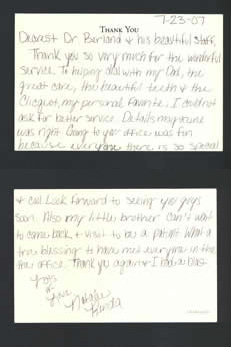 7-23-07
THANK YOU
Dearest Dr. Berland & his beautiful staff,
Thank you so very much for the wonderful
service. To helping deal with my Dad, the
great care, the beautiful teeth & the
Clicquot, my personal favorite. I could not
ask for better service. Details my name
was right. Going to your office was fun
because everyone there is so special
& can. Look forward to seeing you guys
soon. Also my little brother can't wait
to come back & wait to be a patient. What a
true blessing to have met everyone in the
the office. Thank you again & I had a blast
Love
Natalie